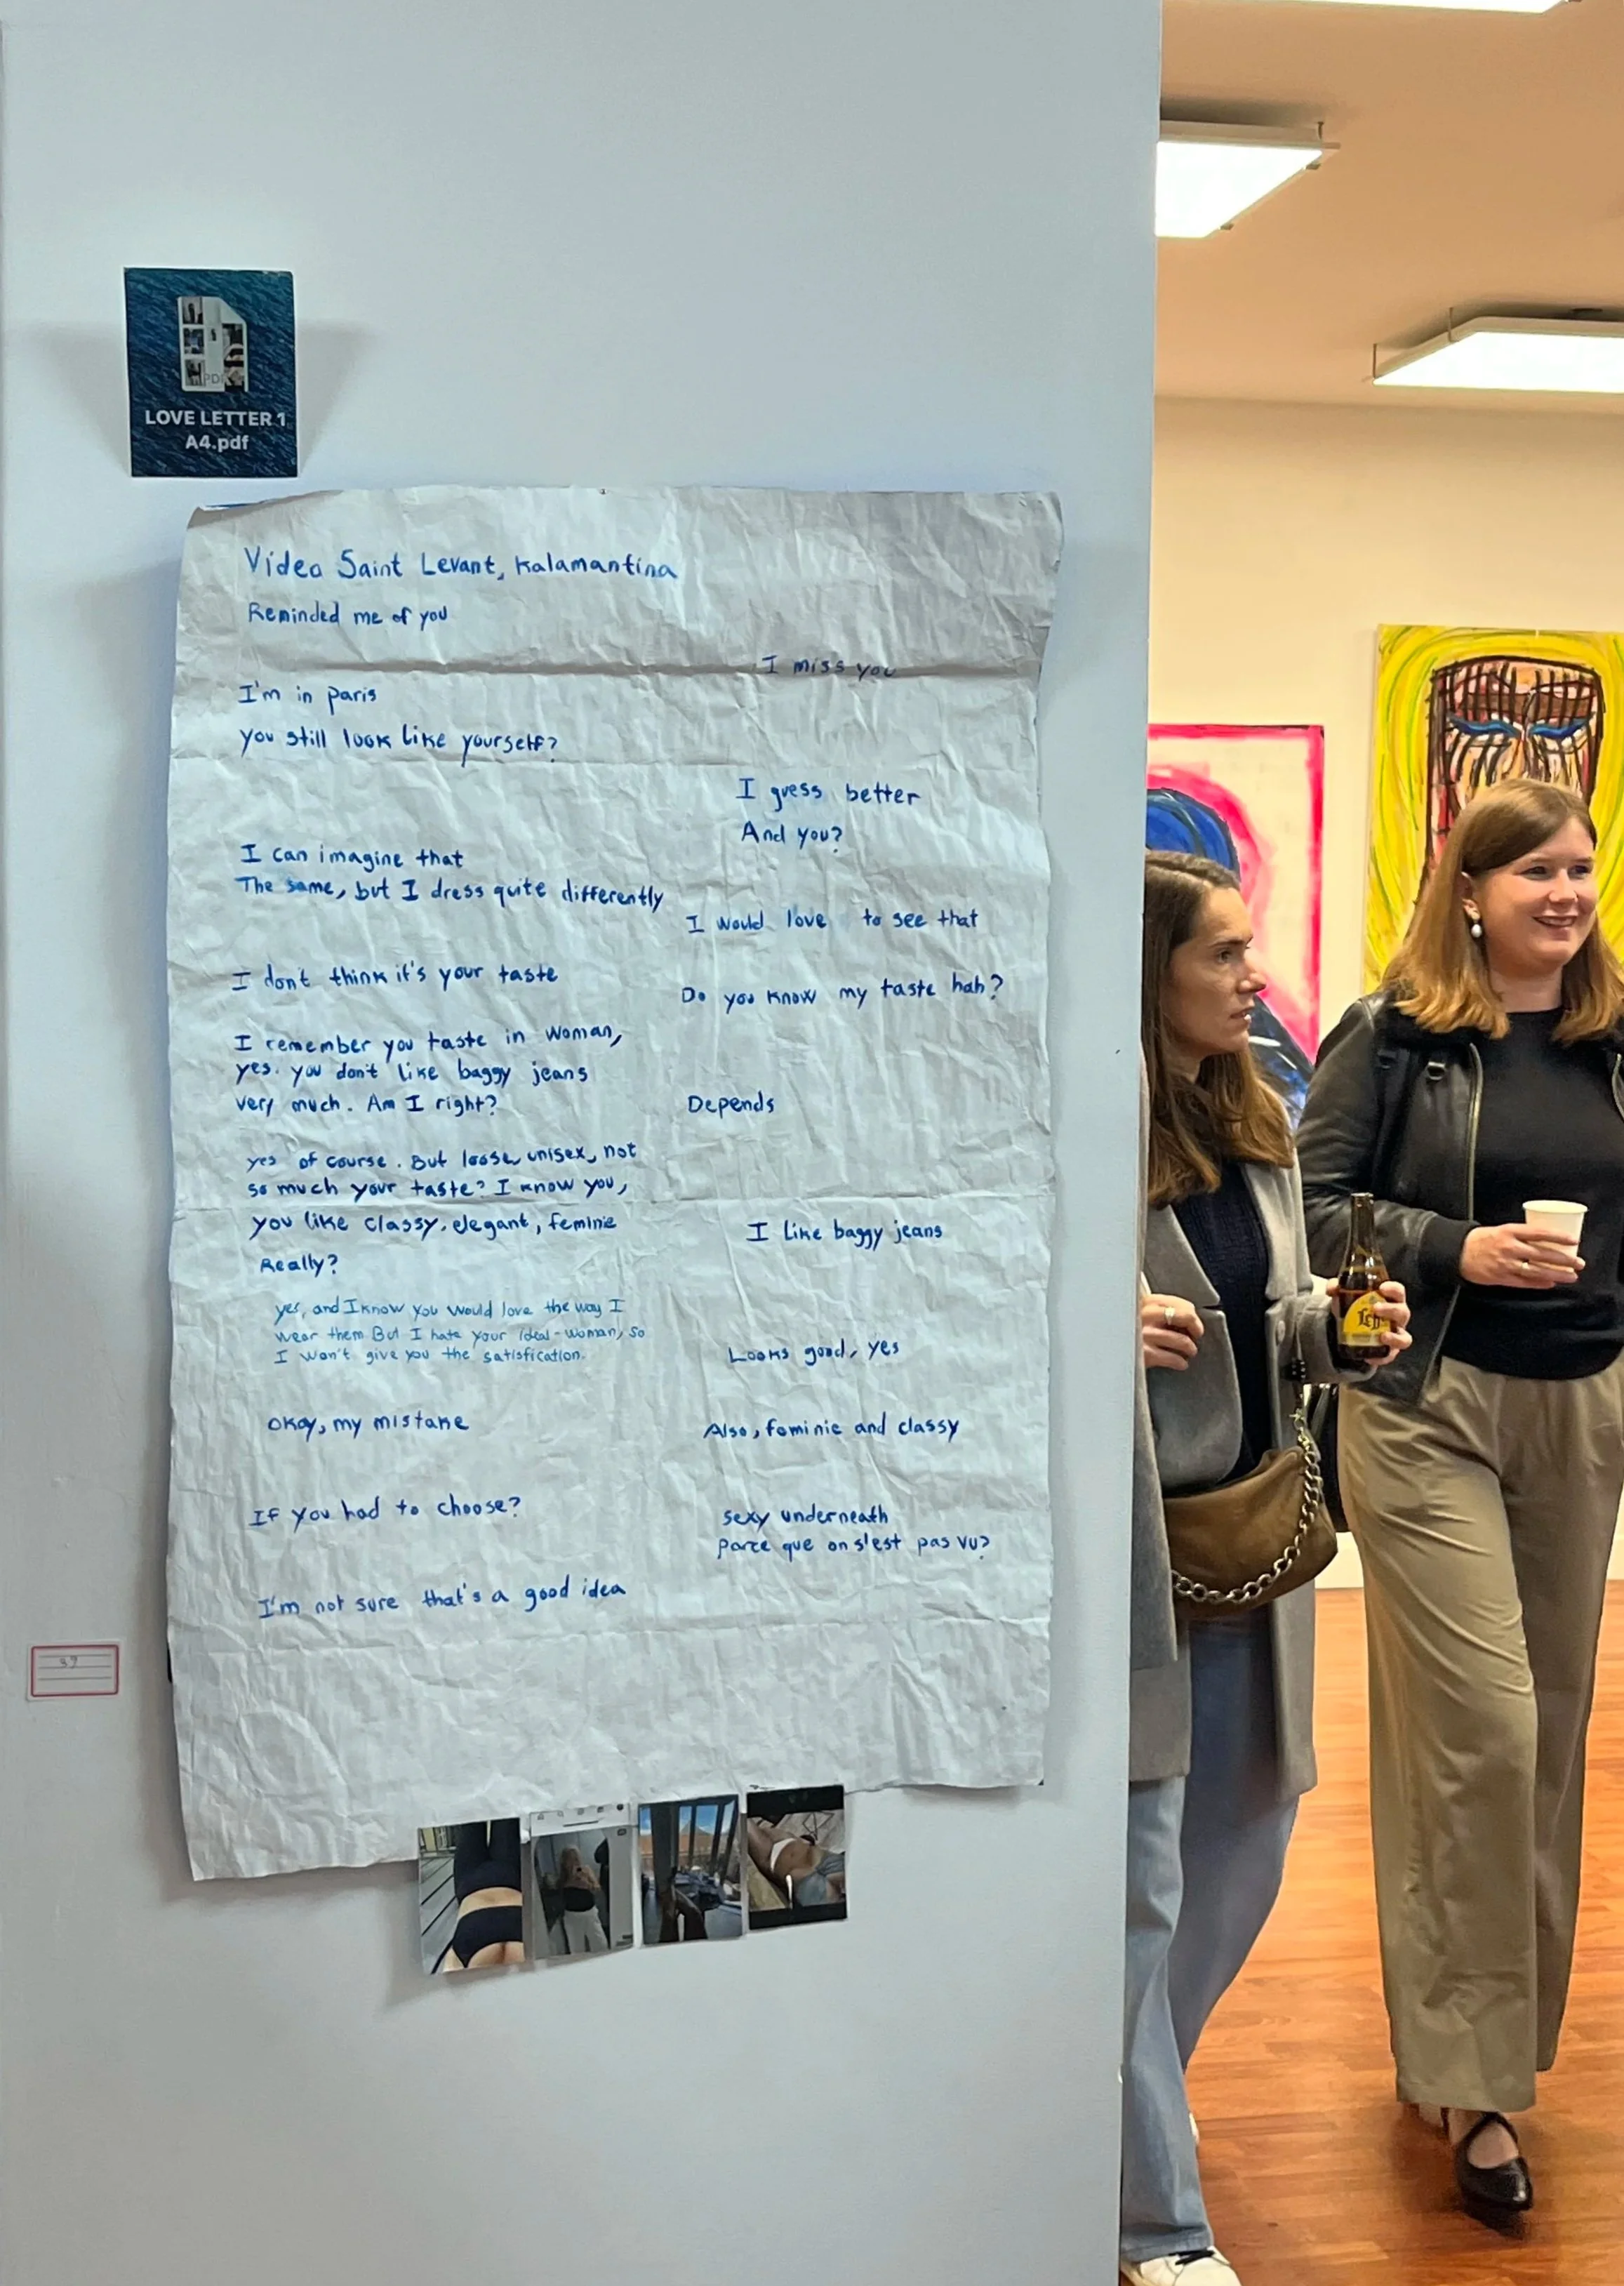 LOVE LETTER 1
A4.pdf
Video Saint Levant, Kalamantina
Reminded me of you
I miss you
I'm in paris
you still look like yourself?
I guess better
And you?
I can imagine that
The same, but I dress quite differently
I would love to see that
I don't think it's your taste
Do you know my taste hah?
I remember you taste in woman,
yes. you don't like baggy jeans
very much. Am I right?
Depends
yes of course. But loose, unisex, not
so much your taste? I know you,
you like classy, elegant, feminie
Really?
I like baggy jeans
yes, and I know you would love the way I
wear them. But I hate your ideal-woman, so
I won't give you the satisfication.
Looks good, yes
Okay, my mistake
Also, feminie and classy
If you had to choose?
sexy underneath
parce que on s'est pas vu?
I'm not sure that's a good idea
37